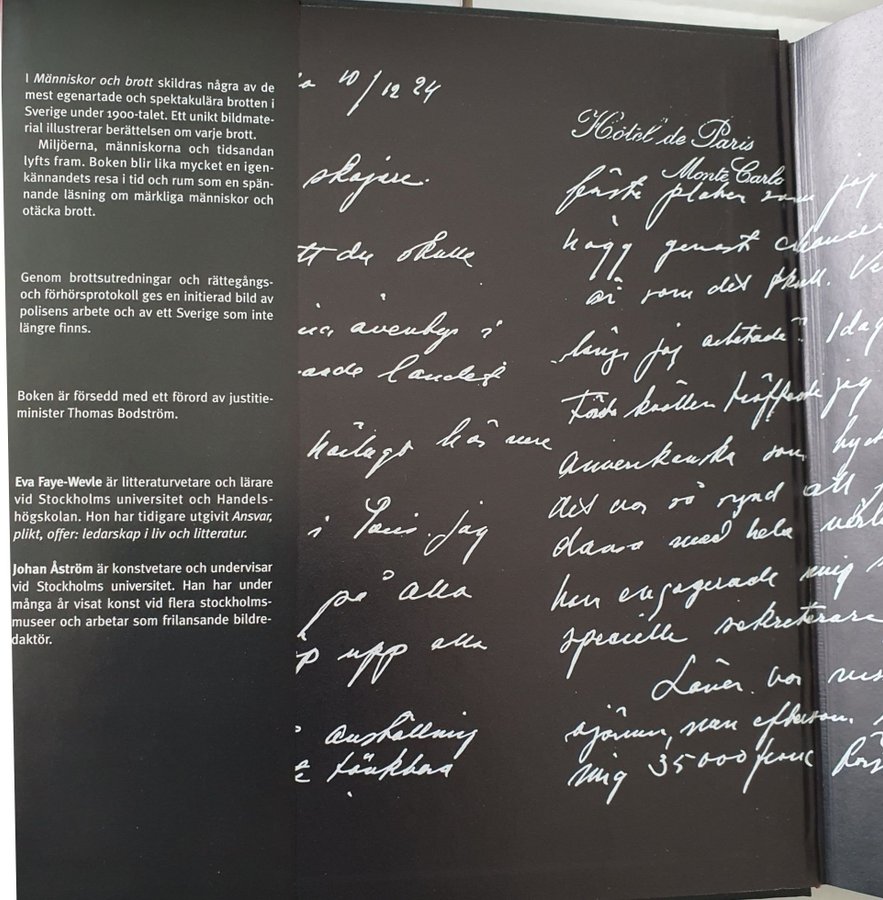 I Människor och brott skildras några av de
mest egenartade och spektakulära brotten i
Sverige under 1900-talet. Ett unikt bildmate-
rial illustrerar berättelsen om varje brott.
Miljöerna, människorna och tidsandan
lyfts fram. Boken blir lika mycket en igen-
kännandets resa i tid och rum som en spän-
nande läsning om märkliga människor och
otäcka brott.
Genom brottsutredningar och rättegångs-
och förhörsprotokoll ges en initierad bild av
polisens arbete och av ett Sverige som inte
längre finns.
Boken är försedd med ett förord av justitie-
minister Thomas Bodström.
Eva Faye-Wevle är litteraturvetare och lärare
vid Stockholms universitet och Handels-
högskolan. Hon har tidigare utgivit Ansvar,
plikt, offer: ledarskap i liv och litteratur.
Johan Åström är konstvetare och undervisar
vid Stockholms universitet. Han har under
många år visat konst vid flera stockholms-
museer och arbetar som frilansande bildre-
daktör.
10/12 24
skojare.
du skulle
i
landet
här
i Paris. jag
på alla
upp alla
anställning
tänkbara
Hôtel de Paris
Monte Carlo
som jag
högg genast
som det
länge jag arbetade? Idag
träffade jag
amerikanska som
det var så synd att
dansa med hela
han engagerade mig
speciella
Lönen var
men eftersom
mig 35000 franc